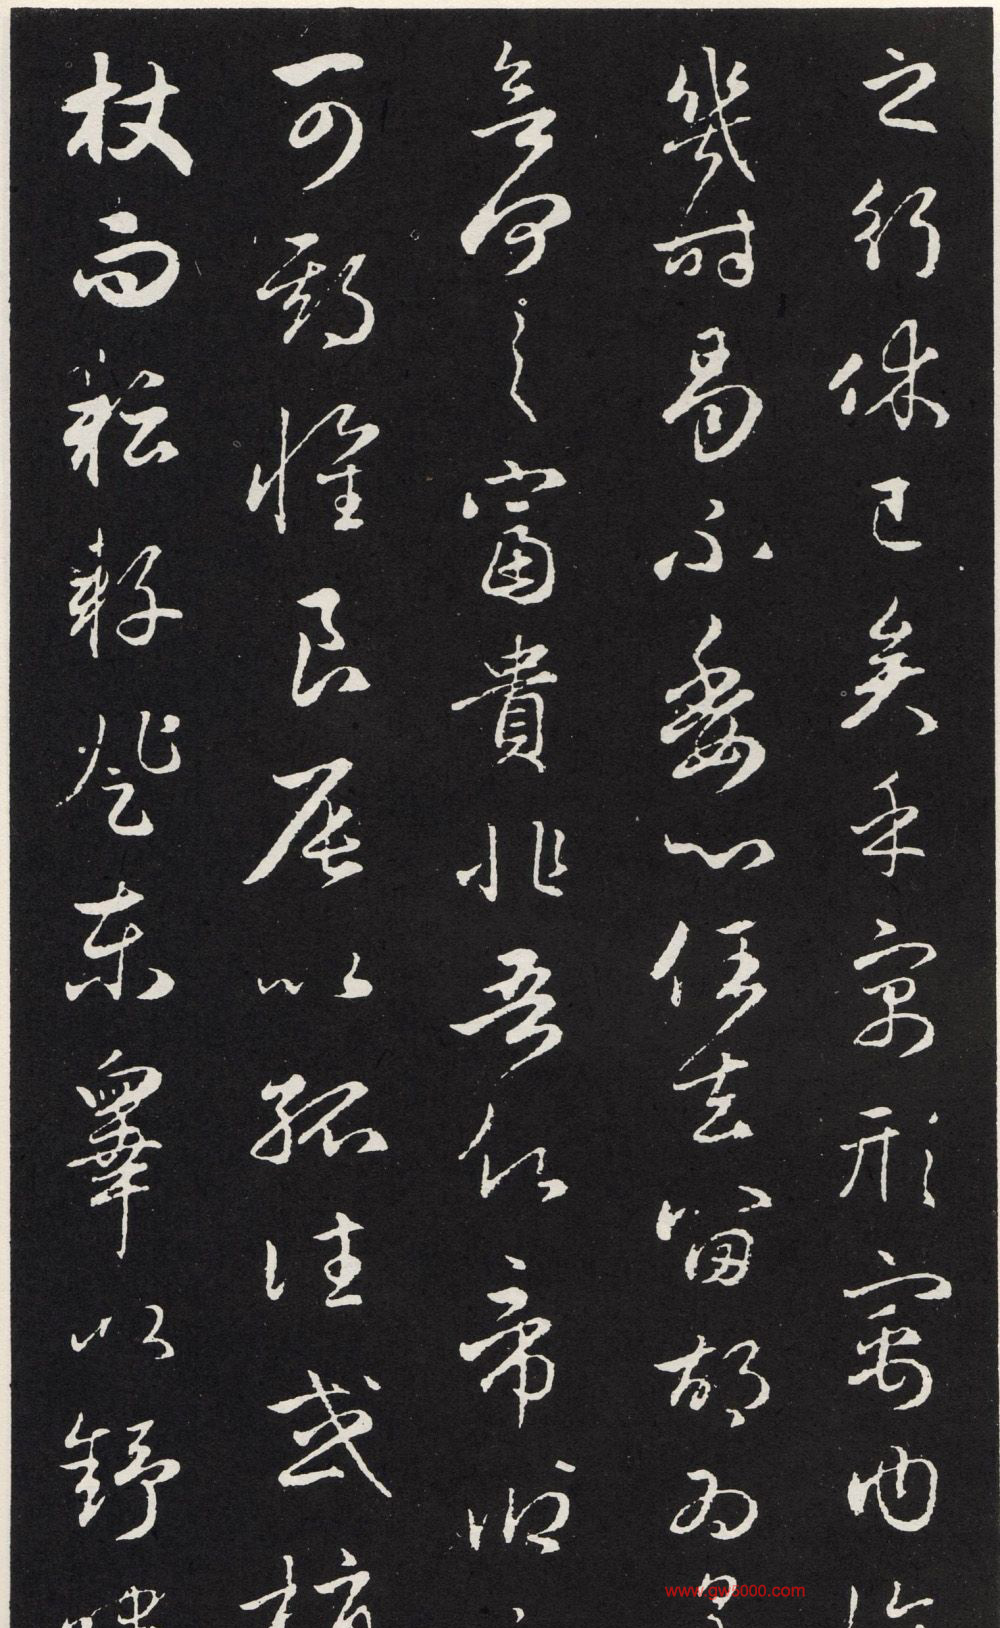 之行休已矣乎寓形㝢内
幾時曷不委心任去留胡為
何之富貴非吾願帝鄉
可期惟良辰以孤往或植
杖而耘耔登東皋以舒嘯
www.gw8000.com